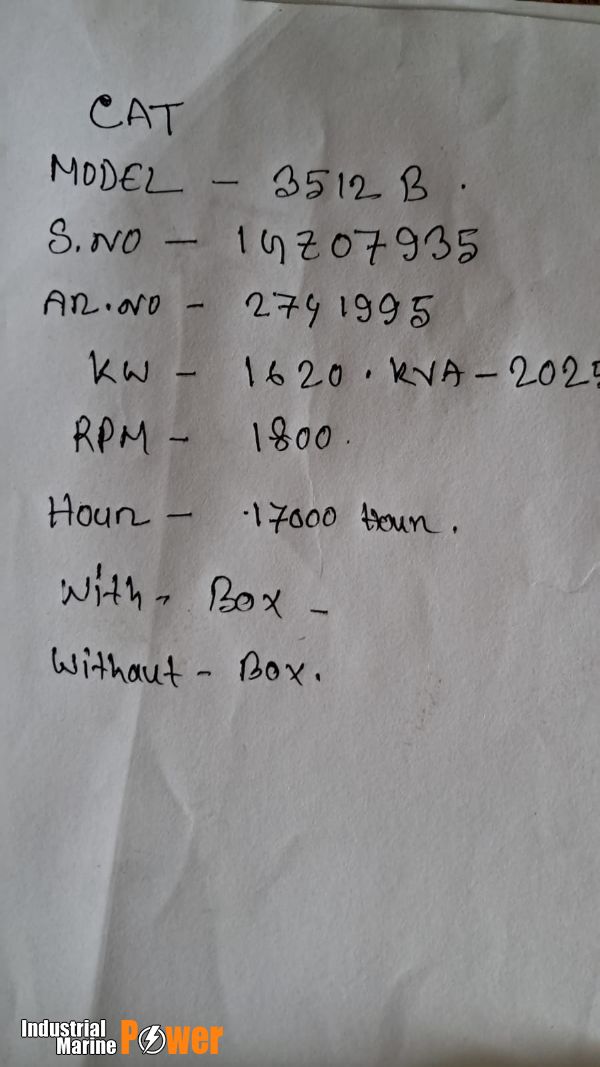 CAT
MODEL - 3512 B.
S.NO - 1GZ07935
AR.NO - 2741995
KW - 1620. KVA - 2025
RPM - 1800.
Hour - 17000 Hour.
With - Box -
Without - Box.
Industrial
Marine Power